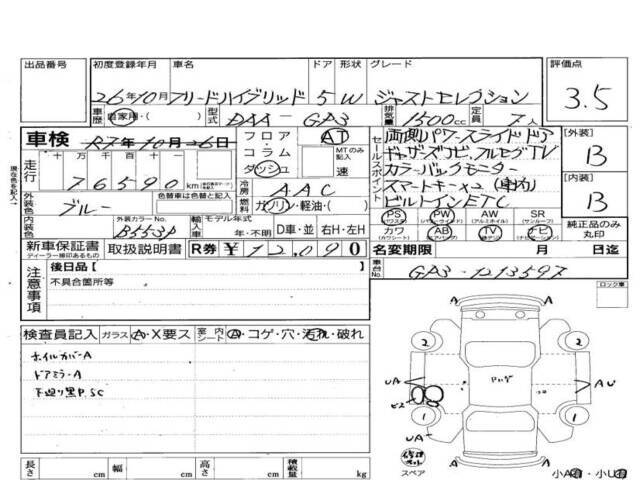 出品番号 初度登録年月 車名 ドア 形状 グレード 評価点
26年10月 フリードハイブリッド 5 W ジャストセレクション 3.5
車歴 自家用・( ) 型式 DAA-GP3 排気量 1500cc 定員 7人
車検 R7年10月26日 フロア・コラム・ダッシュ AT MTのみ記入 速
セールスポイント 両側パワースライドドア
ギャザーズナビ、フルセグTV
カラーバックモニター
スマートキー×2 (車内)
ビルトインETC
[外装] B
[内装] B
現在色を記入
走行 十 万 千 百 十 76590 km
冷房 AAC
外装色 ブルー 燃料 ガソリン・軽油・( )
内装色 外装カラーNo. B553P 輸入車 モデル年式 年・不明 D車・並 右H・左H
PS (パワステ) PW (パワーウインド) AW (アルミホイル) SR (サンルーフ)
カワ (カワシート) AB (エアバッグ) TV ナビ (ナビゲーション)
純正品のみ丸印
新車保証書 ディーラー捺印あるもの 取扱説明書 R券 ¥12,090
名変期限 月 日迄
車台No. GP3-1213597
注意事項 後日品【 】
不具合箇所等
ロック車
検査員記入 ガラス A・X要ス 室内シート A・コゲ・穴・汚れ・破れ
ホイルカバーA
ドアミラーA
下廻り黒P.SC
A
2 2
UA AU
ビス
1 1
UA
A
修理キット
スペア
小A有・小U有
長さ cm 幅 cm 高さ cm 積載量 kg